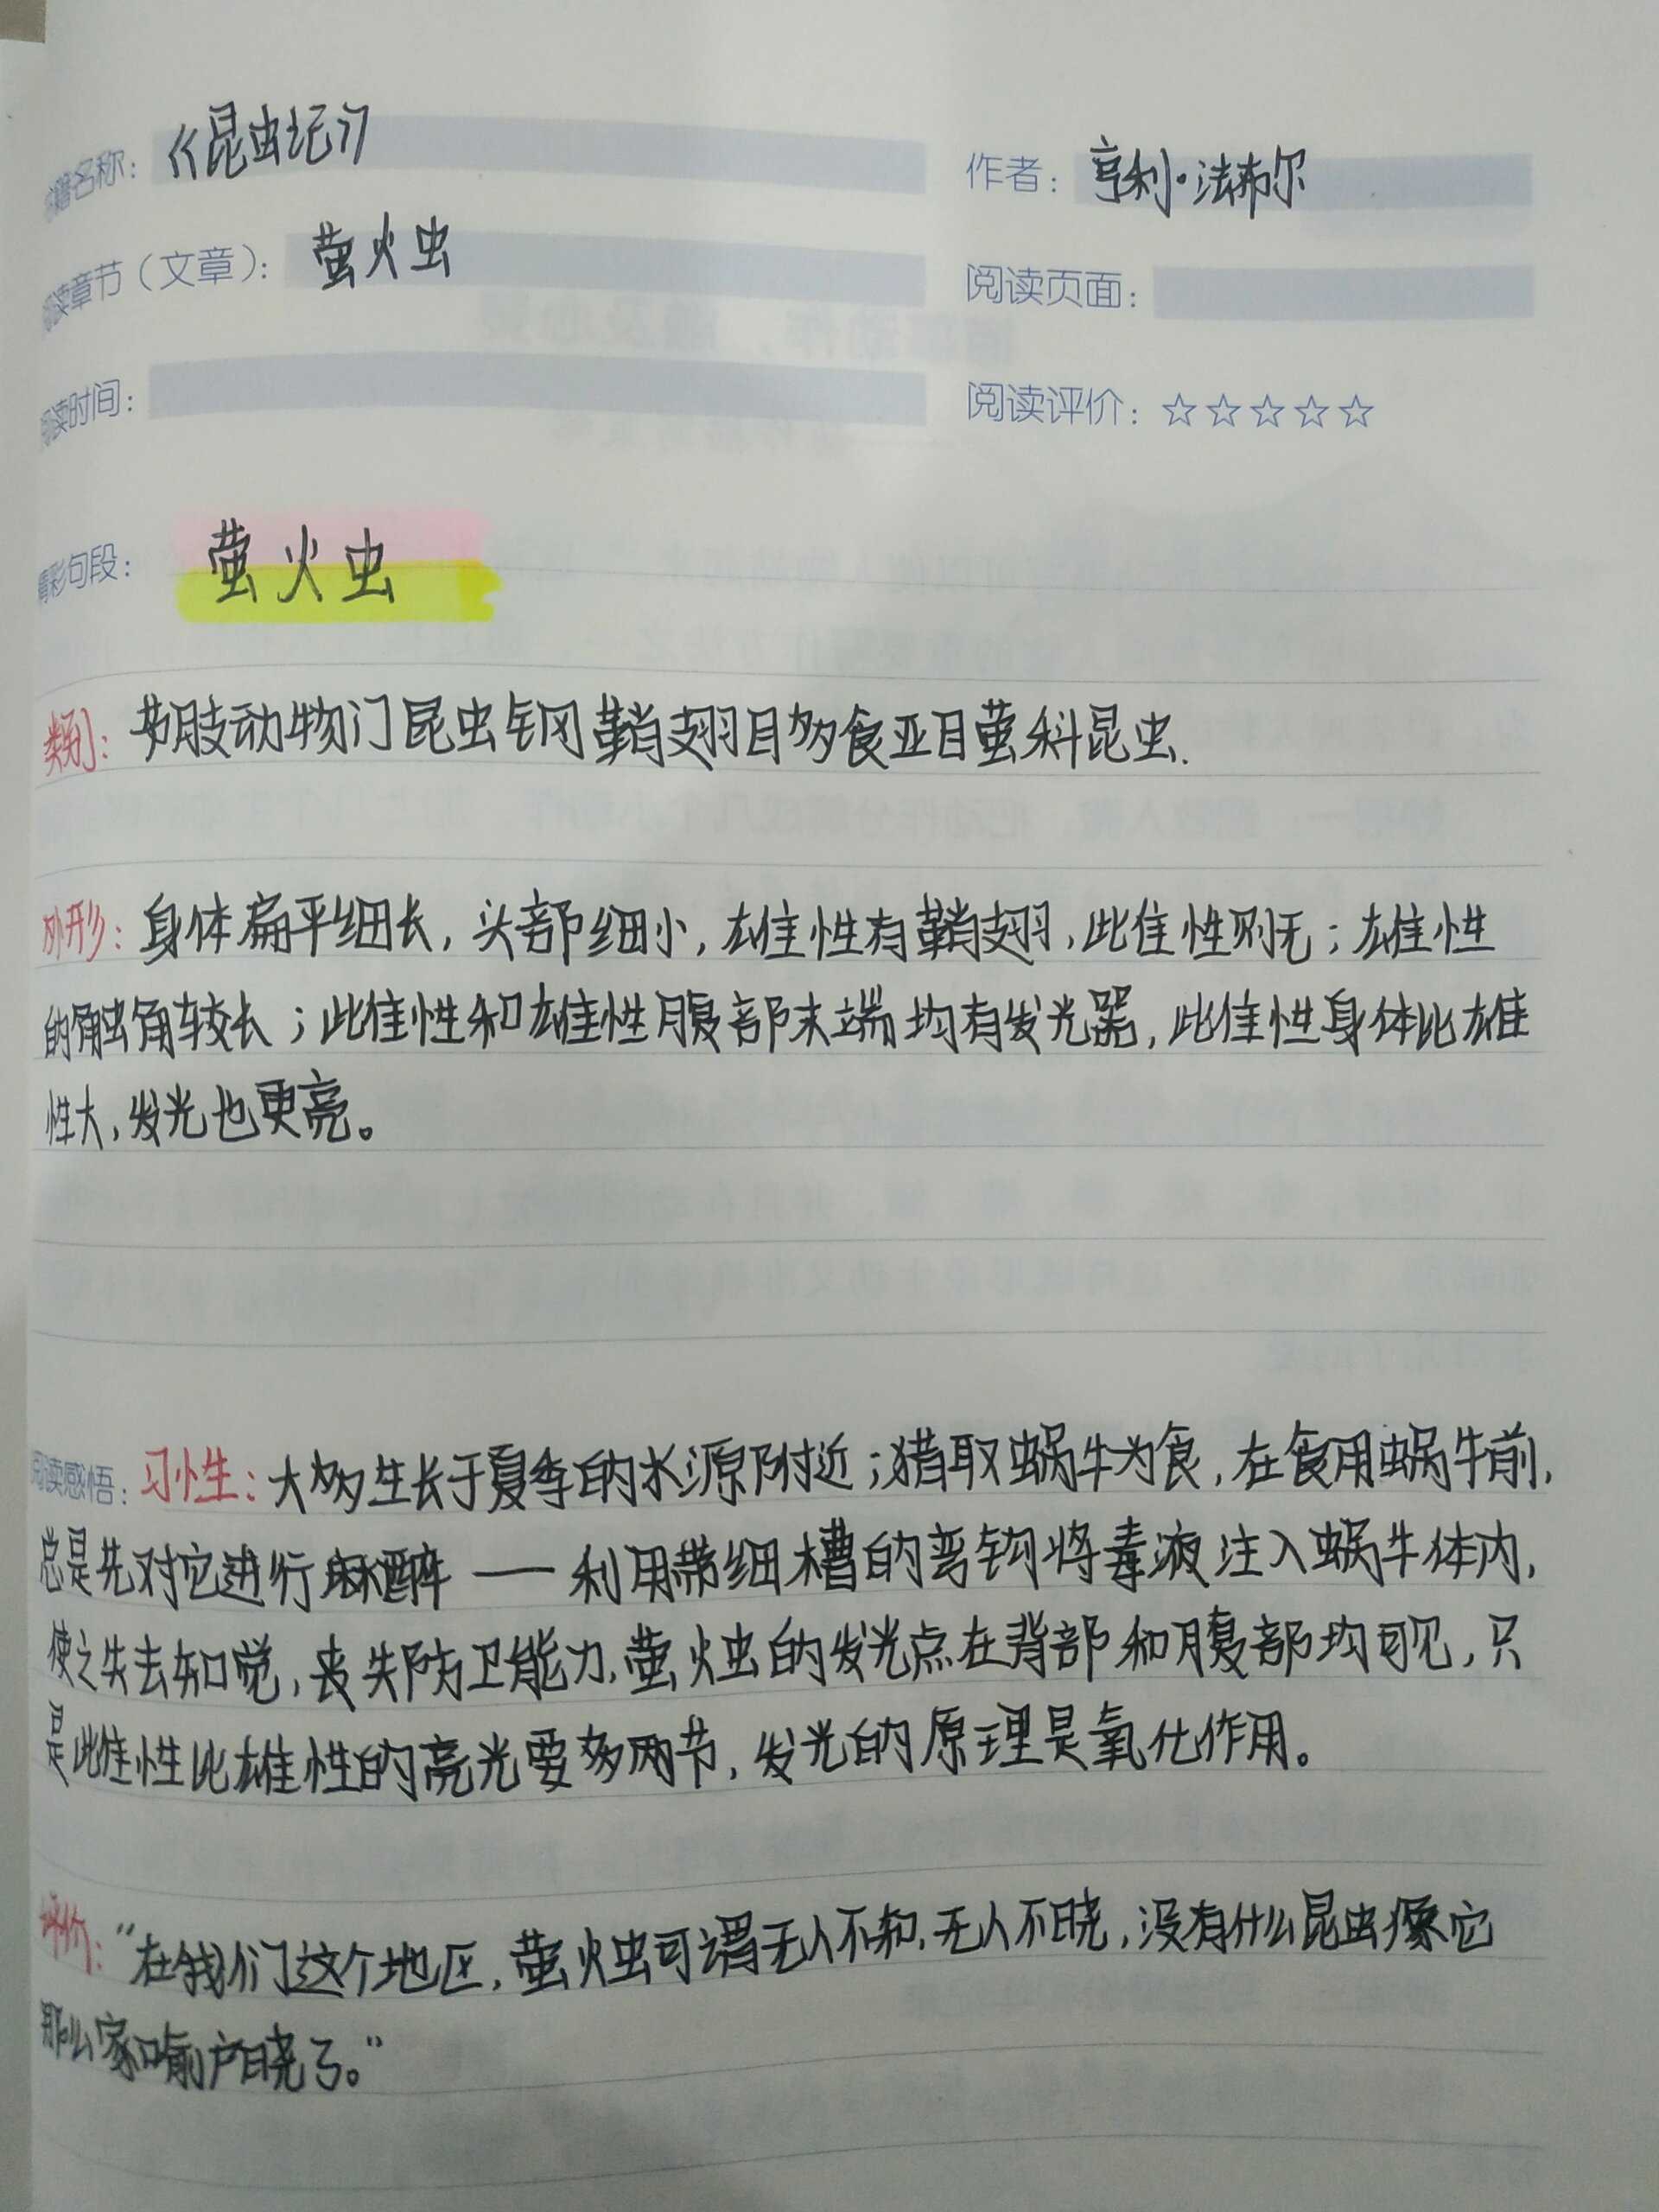 书籍名称：《昆虫记》 作者：亨利·法布尔
阅读章节（文章）：萤火虫 阅读页面：
阅读时间： 阅读评价：☆☆☆☆☆
精彩句段：萤火虫
类别：节肢动物门昆虫钢鞘翅目多食亚目萤科昆虫.
外形：身体扁平细长，头部细小，雄性有鞘翅，雌性则无；雄性
的触角较长；雌性和雄性腹部末端均有发光器，雌性身体比雄
性大，发光也更亮。
阅读感悟：习性：大多生长于夏季的水源附近；猎取蜗牛为食，在食用蜗牛前，
总是先对它进行麻醉——利用带细槽的弯钩将毒液注入蜗牛体内，
使之失去知觉，丧失防卫能力，萤火虫的发光点在背部和腹部均可见，只
是雌性比雄性的亮光要多两节，发光的原理是氧化作用。
评价：“在我们这个地区，萤火虫可谓无人不知，无人不晓，没有什么昆虫像它
那么家喻户晓了。”